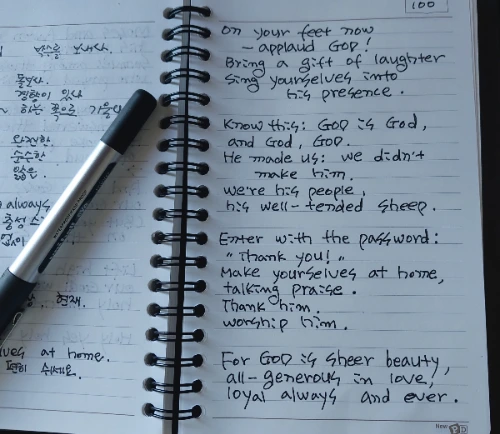 벗을 보내다.
경향이 있다
하는 쪽으로 기울다
완전한
순수한
always
현재.
ves at home.
편히 쉬세요.
100
On your feet now
- applaud GOD!
Bring a gift of laughter
sing yourselves into
his presence.
Know this: GOD is God,
and God, GOD.
He made us: we didn't
make him.
we're his people,
his well-tended sheep.
Enter with the password:
"Thank you!"
Make yourselves at home,
talking praise.
Thank him.
worship him.
For GOD is sheer beauty,
all-generous in love,
loyal always and ever.